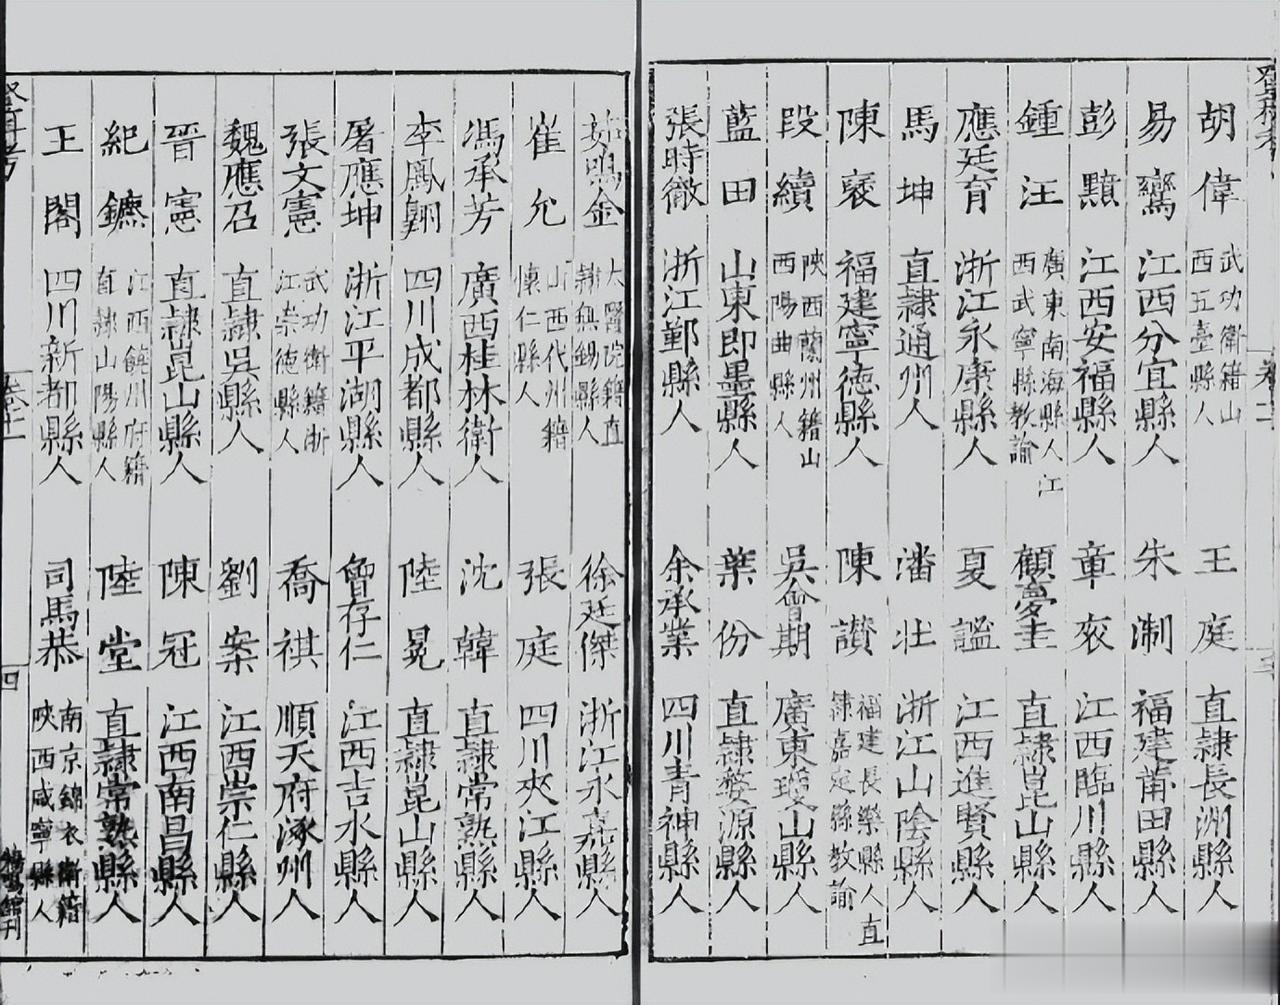 胡偉 武功衛籍山西五臺縣人 王庭 直隸長洲縣人
易鸞 江西分宜縣人 朱淛 福建莆田縣人
彭黯 江西安福縣人 章袞 江西臨川縣人
鍾汪 廣東南海縣人江西武寧縣教諭 顧夢圭 直隸崑山縣人
應廷育 浙江永康縣人 夏謐 江西進賢縣人
馬坤 直隸通州人 潘壯 浙江山陰縣人
陳褒 福建寧德縣人 陳讃 福建長樂縣人直隸嘉定縣教諭
段續 陝西蘭州籍山西陽曲縣人 吳會期 廣東瓊山縣人
藍田 山東即墨縣人 葉份 直隸婺源縣人
張時徹 浙江鄞縣人 余承業 四川青神縣人
鳴金 大醫院籍直隸無錫縣人 徐廷傑 浙江永嘉縣人
崔允 山西代州籍懷仁縣人 張庭 四川夾江縣人
馮承芳 廣西桂林衛人 沈韓 直隸常熟縣人
李鳳翱 四川成都縣人 陸晃 直隸崑山縣人
屠應坤 浙江平湖縣人 曾存仁 江西吉水縣人
張文憲 武功衛籍浙江崇德縣人 喬祺 順天府涿州人
魏應召 直隸吳縣人 劉案 江西崇仁縣人
晉憲 直隸崑山縣人 陳冠 江西南昌縣人
紀鑣 江西饒州府籍直隸山陽縣人 陸堂 直隸常熟縣人
王閣 四川新都縣人 司馬恭 南京錦衣衛籍陝西咸寧縣人